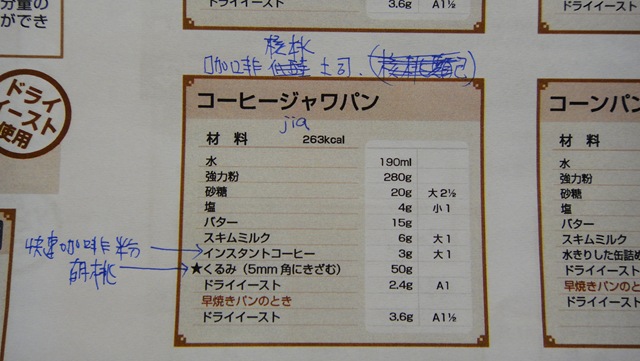 分量の
ができ
ドライイースト 3.6g A1½
ドライイ
核桃
咖啡 土司
ドライ
イースト
使用
コーヒージャワパン
コーンパン
jia
材料 263kcal
材 料
水 190ml
水
強力粉 280g
強力粉
砂糖 20g 大2½
砂糖
塩 4g 小1
塩
バター 15g
バター
スキムミルク 6g 大1
スキムミルク
快速咖啡粉
インスタントコーヒー 3g 大1
水きりした缶詰め
胡桃
★くるみ（5mm角にきざむ） 50g
ドライイースト 2.4g A1
ドライイースト
早焼きパンのとき
早焼きパンのとき
ドライイースト 3.6g A1½
ドライイースト